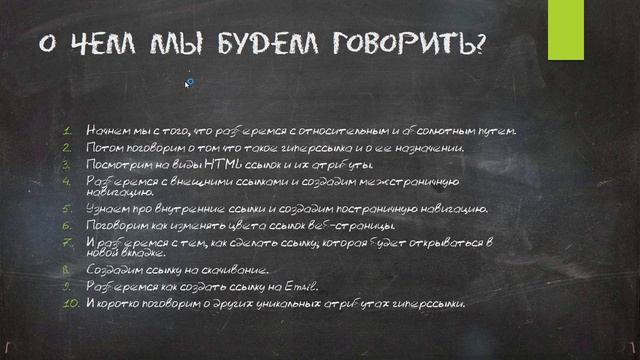 О ЧЕМ МЫ БУДЕМ ГОВОРИТЬ?
1. Начнем мы с того, что разберемся с относительным и абсолютным путем.
2. Потом поговорим о том что такое гиперссылка и о ее назначении.
3. Посмотрим на виды HTML ссылок и их атрибуты.
4. Разберемся с внешними ссылками и создадим межстраничную
навигацию.
5. Узнаем про внутренние ссылки и создадим постраничную навигацию.
6. Поговорим как изменять цвета ссылок веб-страницы.
7. И разберемся с тем, как сделать ссылку, которая будет открываться в
новой вкладке.
8. Создадим ссылку на скачивание.
9. Разберемся как создать ссылку на Email.
10. И коротко поговорим о других уникальных атрибутах гиперссылки.